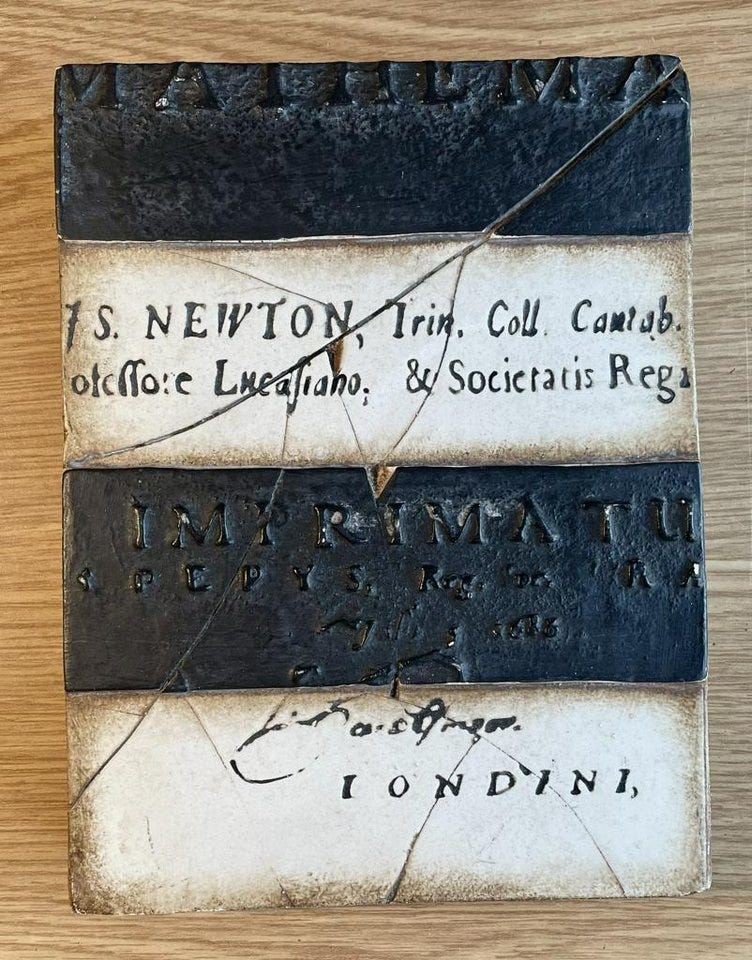 MATHEMA
JS. NEWTON, Trin. Coll. Cantab.
ofessore Lucasiano, & Societatis Rega
IMPRIMATU
S PEPYS, Reg. RA
5 1686
IONDINI,